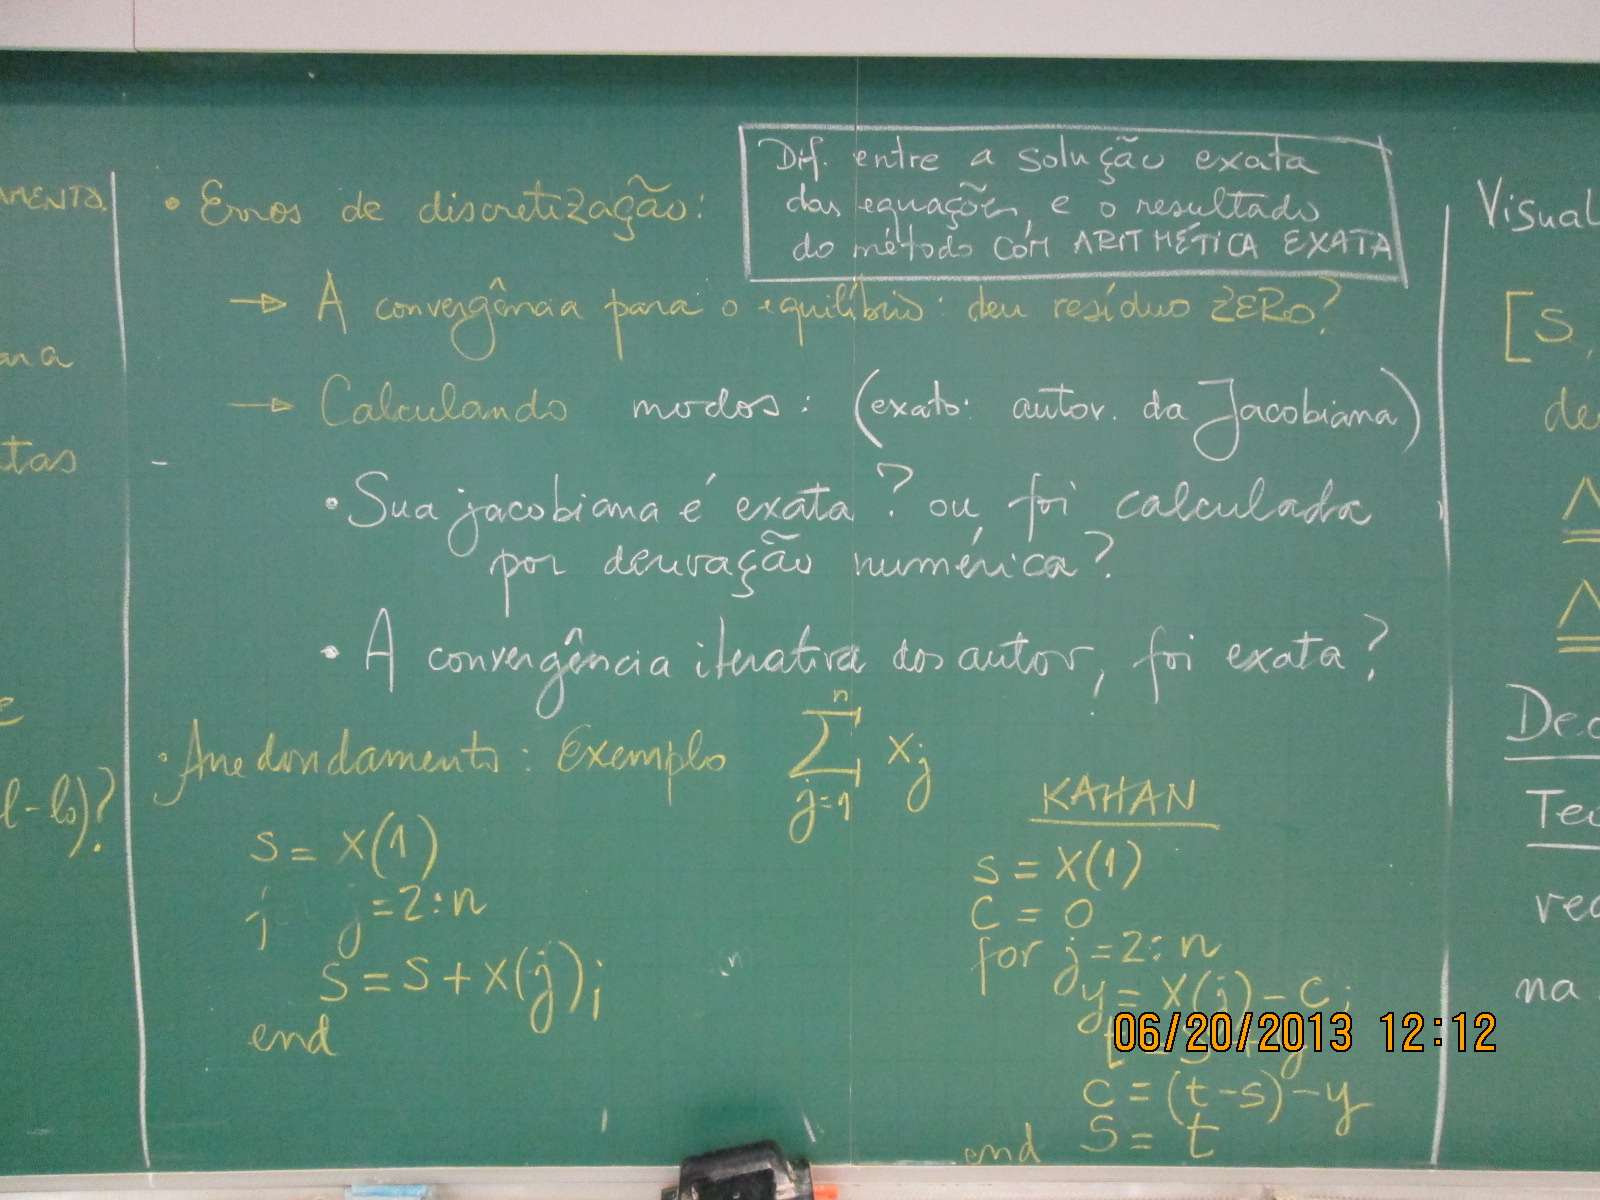 AMENTO.
ara
tas
e
(l-l₀)?
• Erros de discretização:
Dif. entre a solução exata
das equações, e o resultado
do método COM ARITMÉTICA EXATA
→ A convergência para o equilíbrio: deu resíduo ZERO?
→ Calculando modos: (exato: autov. da Jacobiana)
• Sua jacobiana é exata? ou foi calculada
por derivação numérica?
• A convergência iterativa dos autov, foi exata?
• Arredondamento: Exemplo
n
∑ xj
j=1
s = x(1)
j = 2:n
s = s + x(j);
end
KAHAN
s = x(1)
c = 0
for j = 2:n
y = x(j) - c;
t = s + y
c = (t-s) - y
s = t
end
Visual
[S,
de
Λ
Λ
Dec
Te
re
na
06/20/2013 12:12